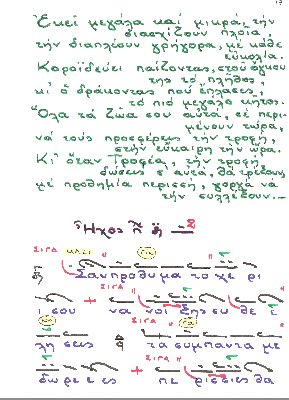 Ἐκεῖ μεγάλα καί μικρά, τήν
διασχίζουν πλοῖα,
τήν διαπλέουν γρήγορα, μέ κάθε
εὐκολία.
Κοροϊδεύει παίζοντας, στοῦ
της τό πλῆθος,
κι ὁ δράκοντας πού ἔπλασες,
τό πιό μεγάλο κῆτος.
Ὅλα τά ζῶα σου αὐτά, σέ περι-
μένουν τώρα,
νά τούς προσφέρεις τήν τροφή,
στήν εὔκαιρη τήν ὥρα.
Κι ὅταν Τροφέα, τήν τροφή,
δώσεις σ' αὐτά, θά τρέξουν,
μέ προθημία περισσή, γοργά νά
τήν συλλέξουν.
Ἦχος
Σαν προθυμα το χε ρι
ι σου να νοι ξης ευ θε ε
λη σεις τα συμπαντα με
δω ρε ε ες πε ρισσιες θα